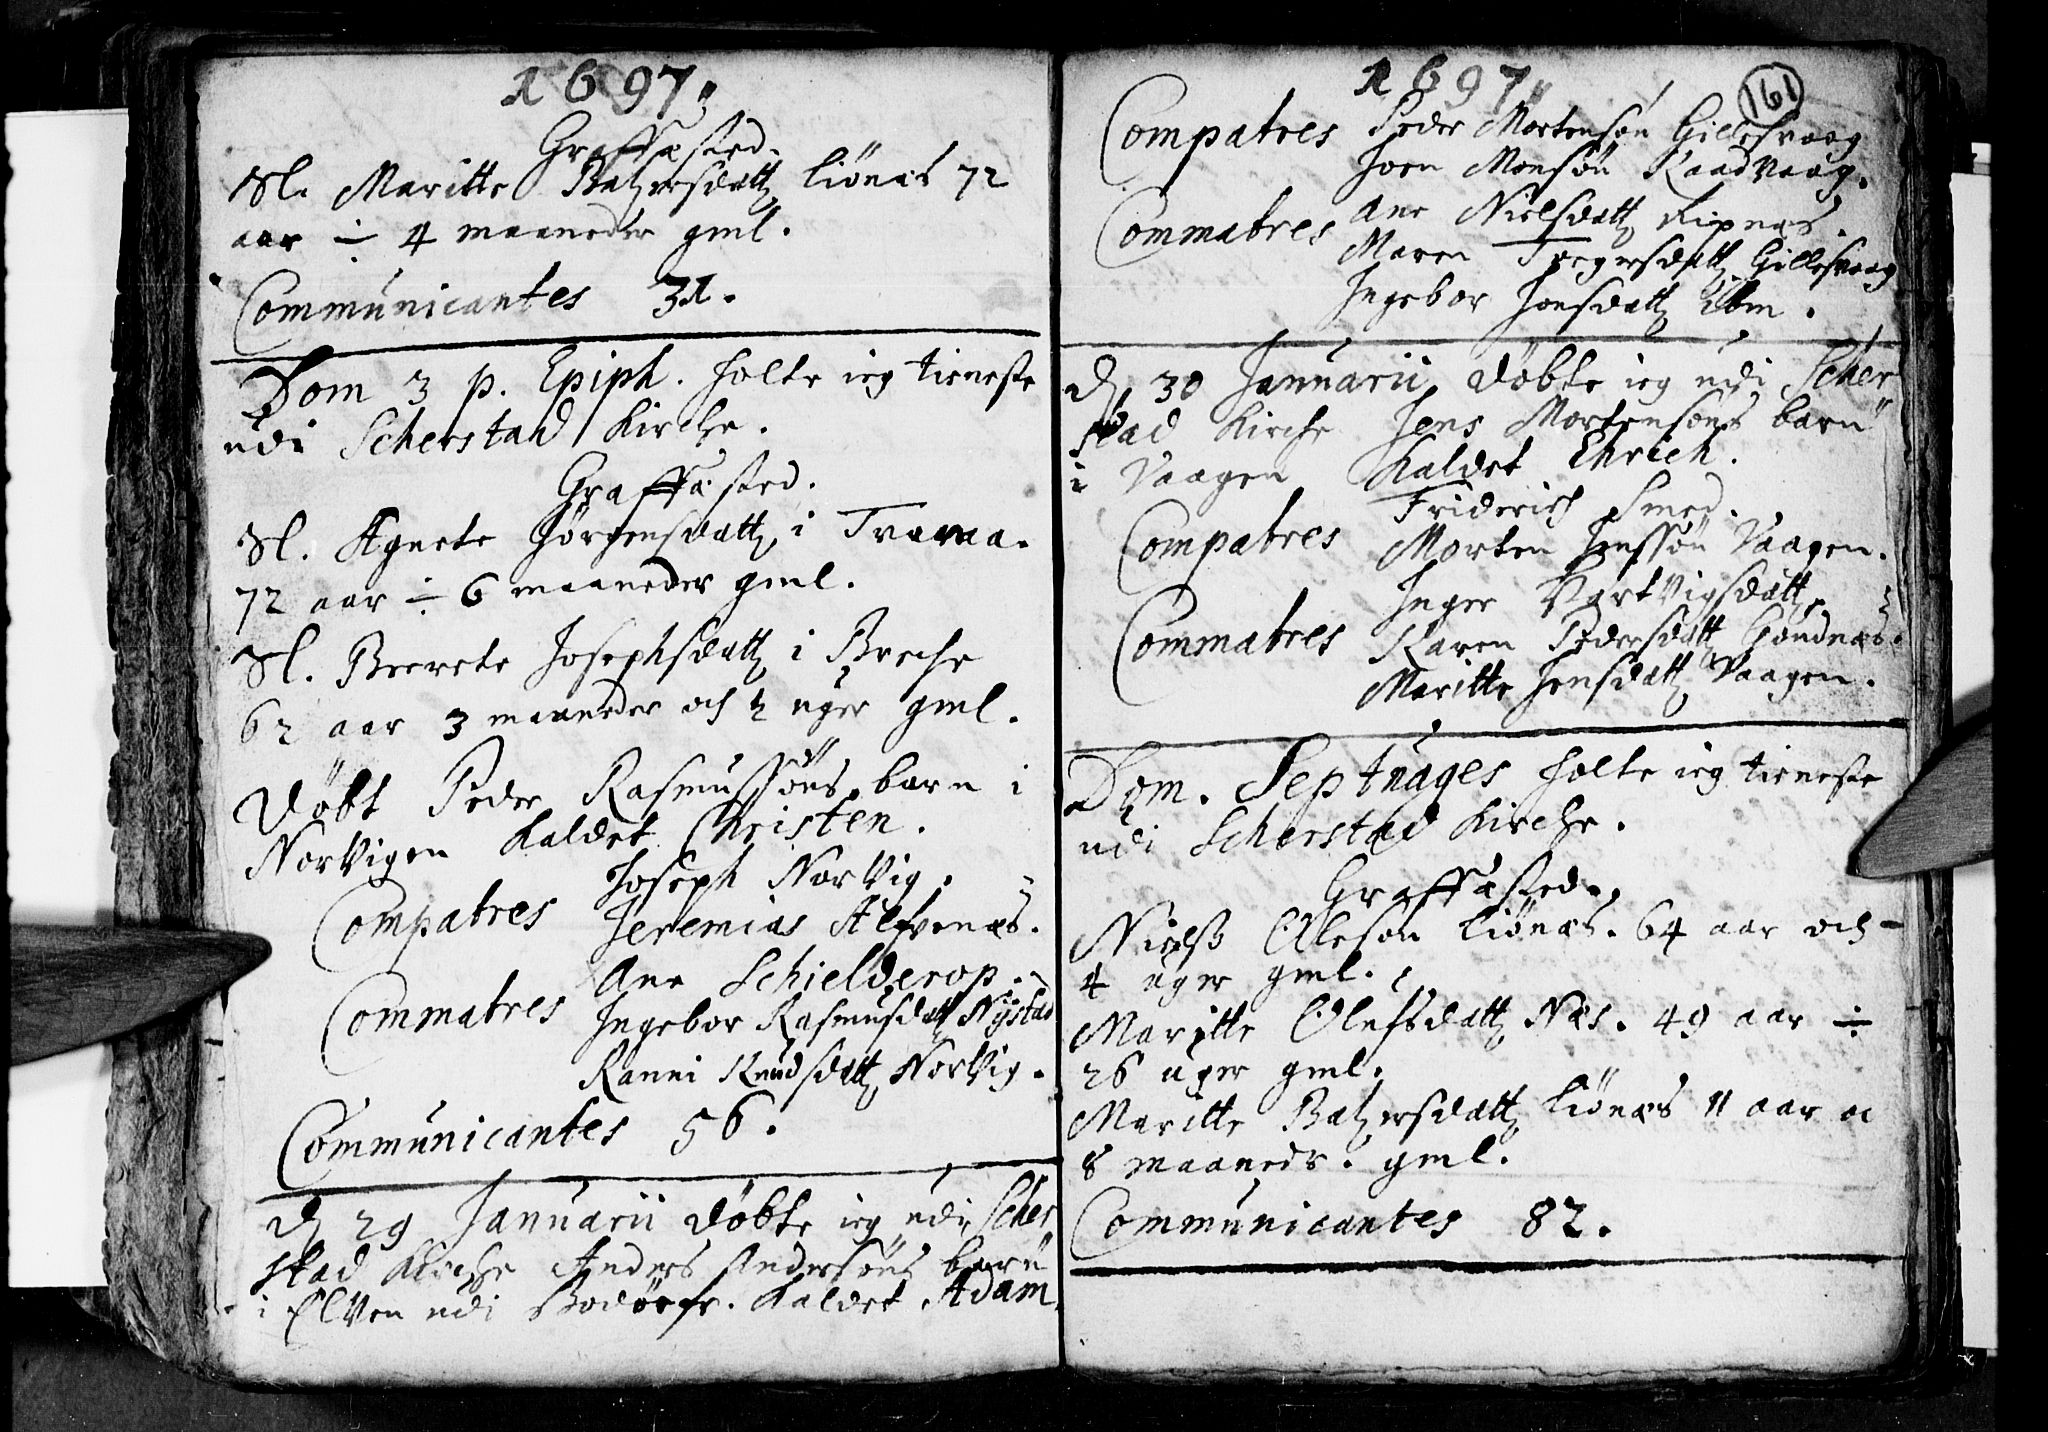 1697.
Graffæsted.
Sl. Maritte Baltzersdatt Liönæs 72
aar ÷ 4 maaneder gml.
Communicantes 31.
Dom 3 p. Epiph. holte ieg tieneste
udi Scherstad Kirche.
Graffæsted.
Sl. Agnete Jörgensdatt i
72 aar ÷ 6 maaneder gml.
Sl. Beerete Josephsdatt i Breche
62 aar 3 maaneder och 2 uger gml.
Döbt Peder Rasmussöns barn i
Norvigen Kaldet Christen.
Joseph Norvig.
Compatres Jeremias Alfvenæs.
Ane Schielderop.
Commatres Ingebor Rasmusdatt Nystad
Ranni Knudsdatt Norvig.
Communicantes 56.
d 29 Januarii döbte ieg udi Scher
stad Kirche Anders Andersöns barn
i Elven udi Bodöe Kaldet Adam.
1697.
161
Compatres Peder Mortensön Gillesvaag
Joen Monsön Kaadvaag.
Commatres Ane Nielsdatt Ripnæs.
Maren Gillesvaag
Ingebor Jonsdatt ibm.
d 30 Januarii döbte ieg udi Scher
stad Kirche Jens Mortensöns barn
i Vaagen Kaldet Ehrich.
Friderich Smed.
Compatres Morten Jenssön Vaagen.
Inger Hartvigsdatt
Commatres Karen Pedersdatt Godnæs.
Maritte Jensdatt Vaagen.
Dom. Septuages holte ieg tieneste
udi Scherstad Kirche.
Graffæsted.
Nielss Olesön Liönæs. 64 aar och
4 uger gml.
Maritte Olufsdatt Næs. 49 aar ÷
26 uger gml.
Maritte Baltzersdatt Liönæs 11 aar oc
8 maaneds. gml.
Communicantes 82.